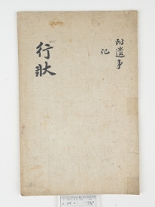 附遺事
記
行狀